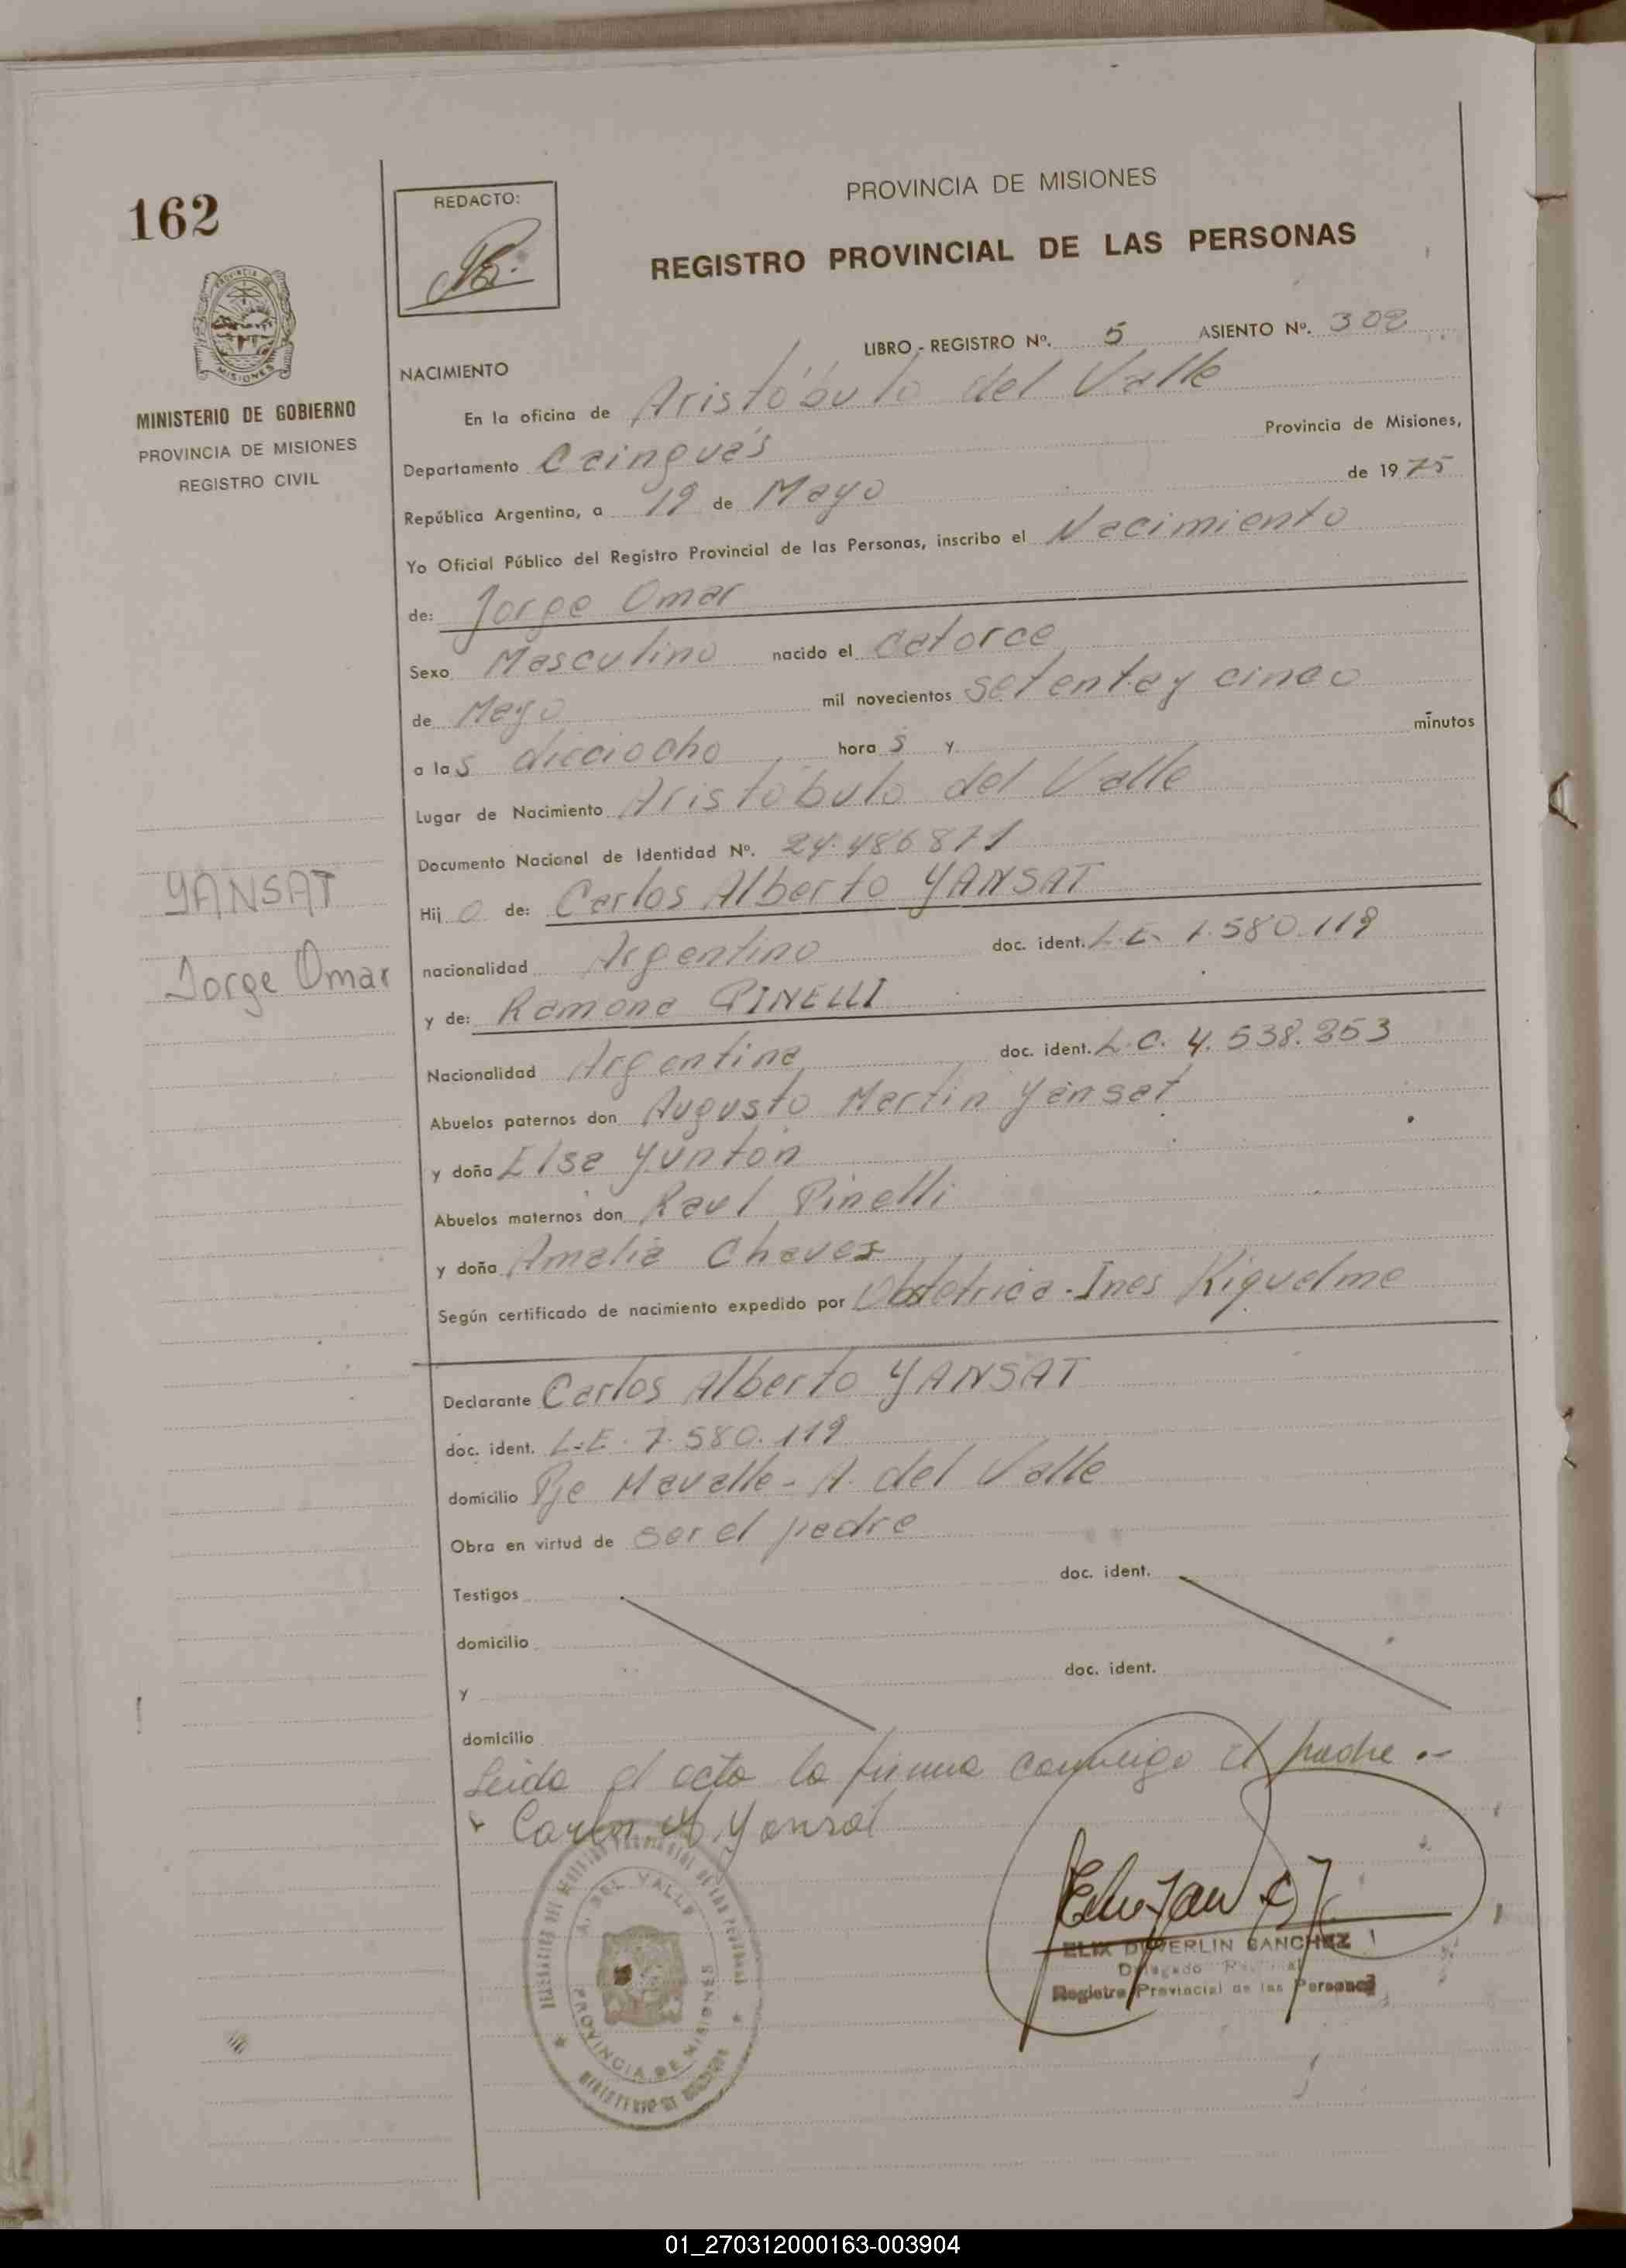 162
REDACTO:
PROVINCIA DE MISIONES
REGISTRO PROVINCIAL DE LAS PERSONAS
MINISTERIO DE GOBIERNO
PROVINCIA DE MISIONES
REGISTRO CIVIL
LIBRO - REGISTRO Nº. 5 ASIENTO Nº. 302
NACIMIENTO
En la oficina de Aristóbulo del Valle
Departamento Cainguás Provincia de Misiones,
República Argentina, a 19 de Mayo de 1975
Yo Oficial Público del Registro Provincial de las Personas, inscribo el Nacimiento
de: Jorge Omar
Sexo Masculino nacido el catorce
de Mayo mil novecientos setenta y cinco
a las dieciocho horas y minutos
Lugar de Nacimiento Aristóbulo del Valle
Documento Nacional de Identidad Nº. 24.486871
YANSAT
Jorge Omar
Hijo de: Carlos Alberto YANSAT
nacionalidad Argentino doc. ident. L.E. 7.580.119
y de: Ramona PINELLI
Nacionalidad Argentina doc. ident. L.C. 4.538.253
Abuelos paternos don Augusto Martin Yansat
y doña Elsa Yunton
Abuelos maternos don Raul Pinelli
y doña Amalia Chavez
Según certificado de nacimiento expedido por Obstetrica - Ines Riquelme
Declarante Carlos Alberto YANSAT
doc. ident. L.E. 7.580.119
domicilio Pje Mavalle - A. del Valle
Obra en virtud de ser el padre
Testigos doc. ident.
domicilio
y doc. ident.
domicilio
Leida el acta la firma conmigo el padre .-
Carlos A. Yansat
A. DEL VALLE
PROVINCIA DE MISIONES
MINISTERIO DE GOBIERNO
ELIX DUVERLIN SANCHEZ
Delegado
Registro Provincial de las Personas
01_270312000163-003904